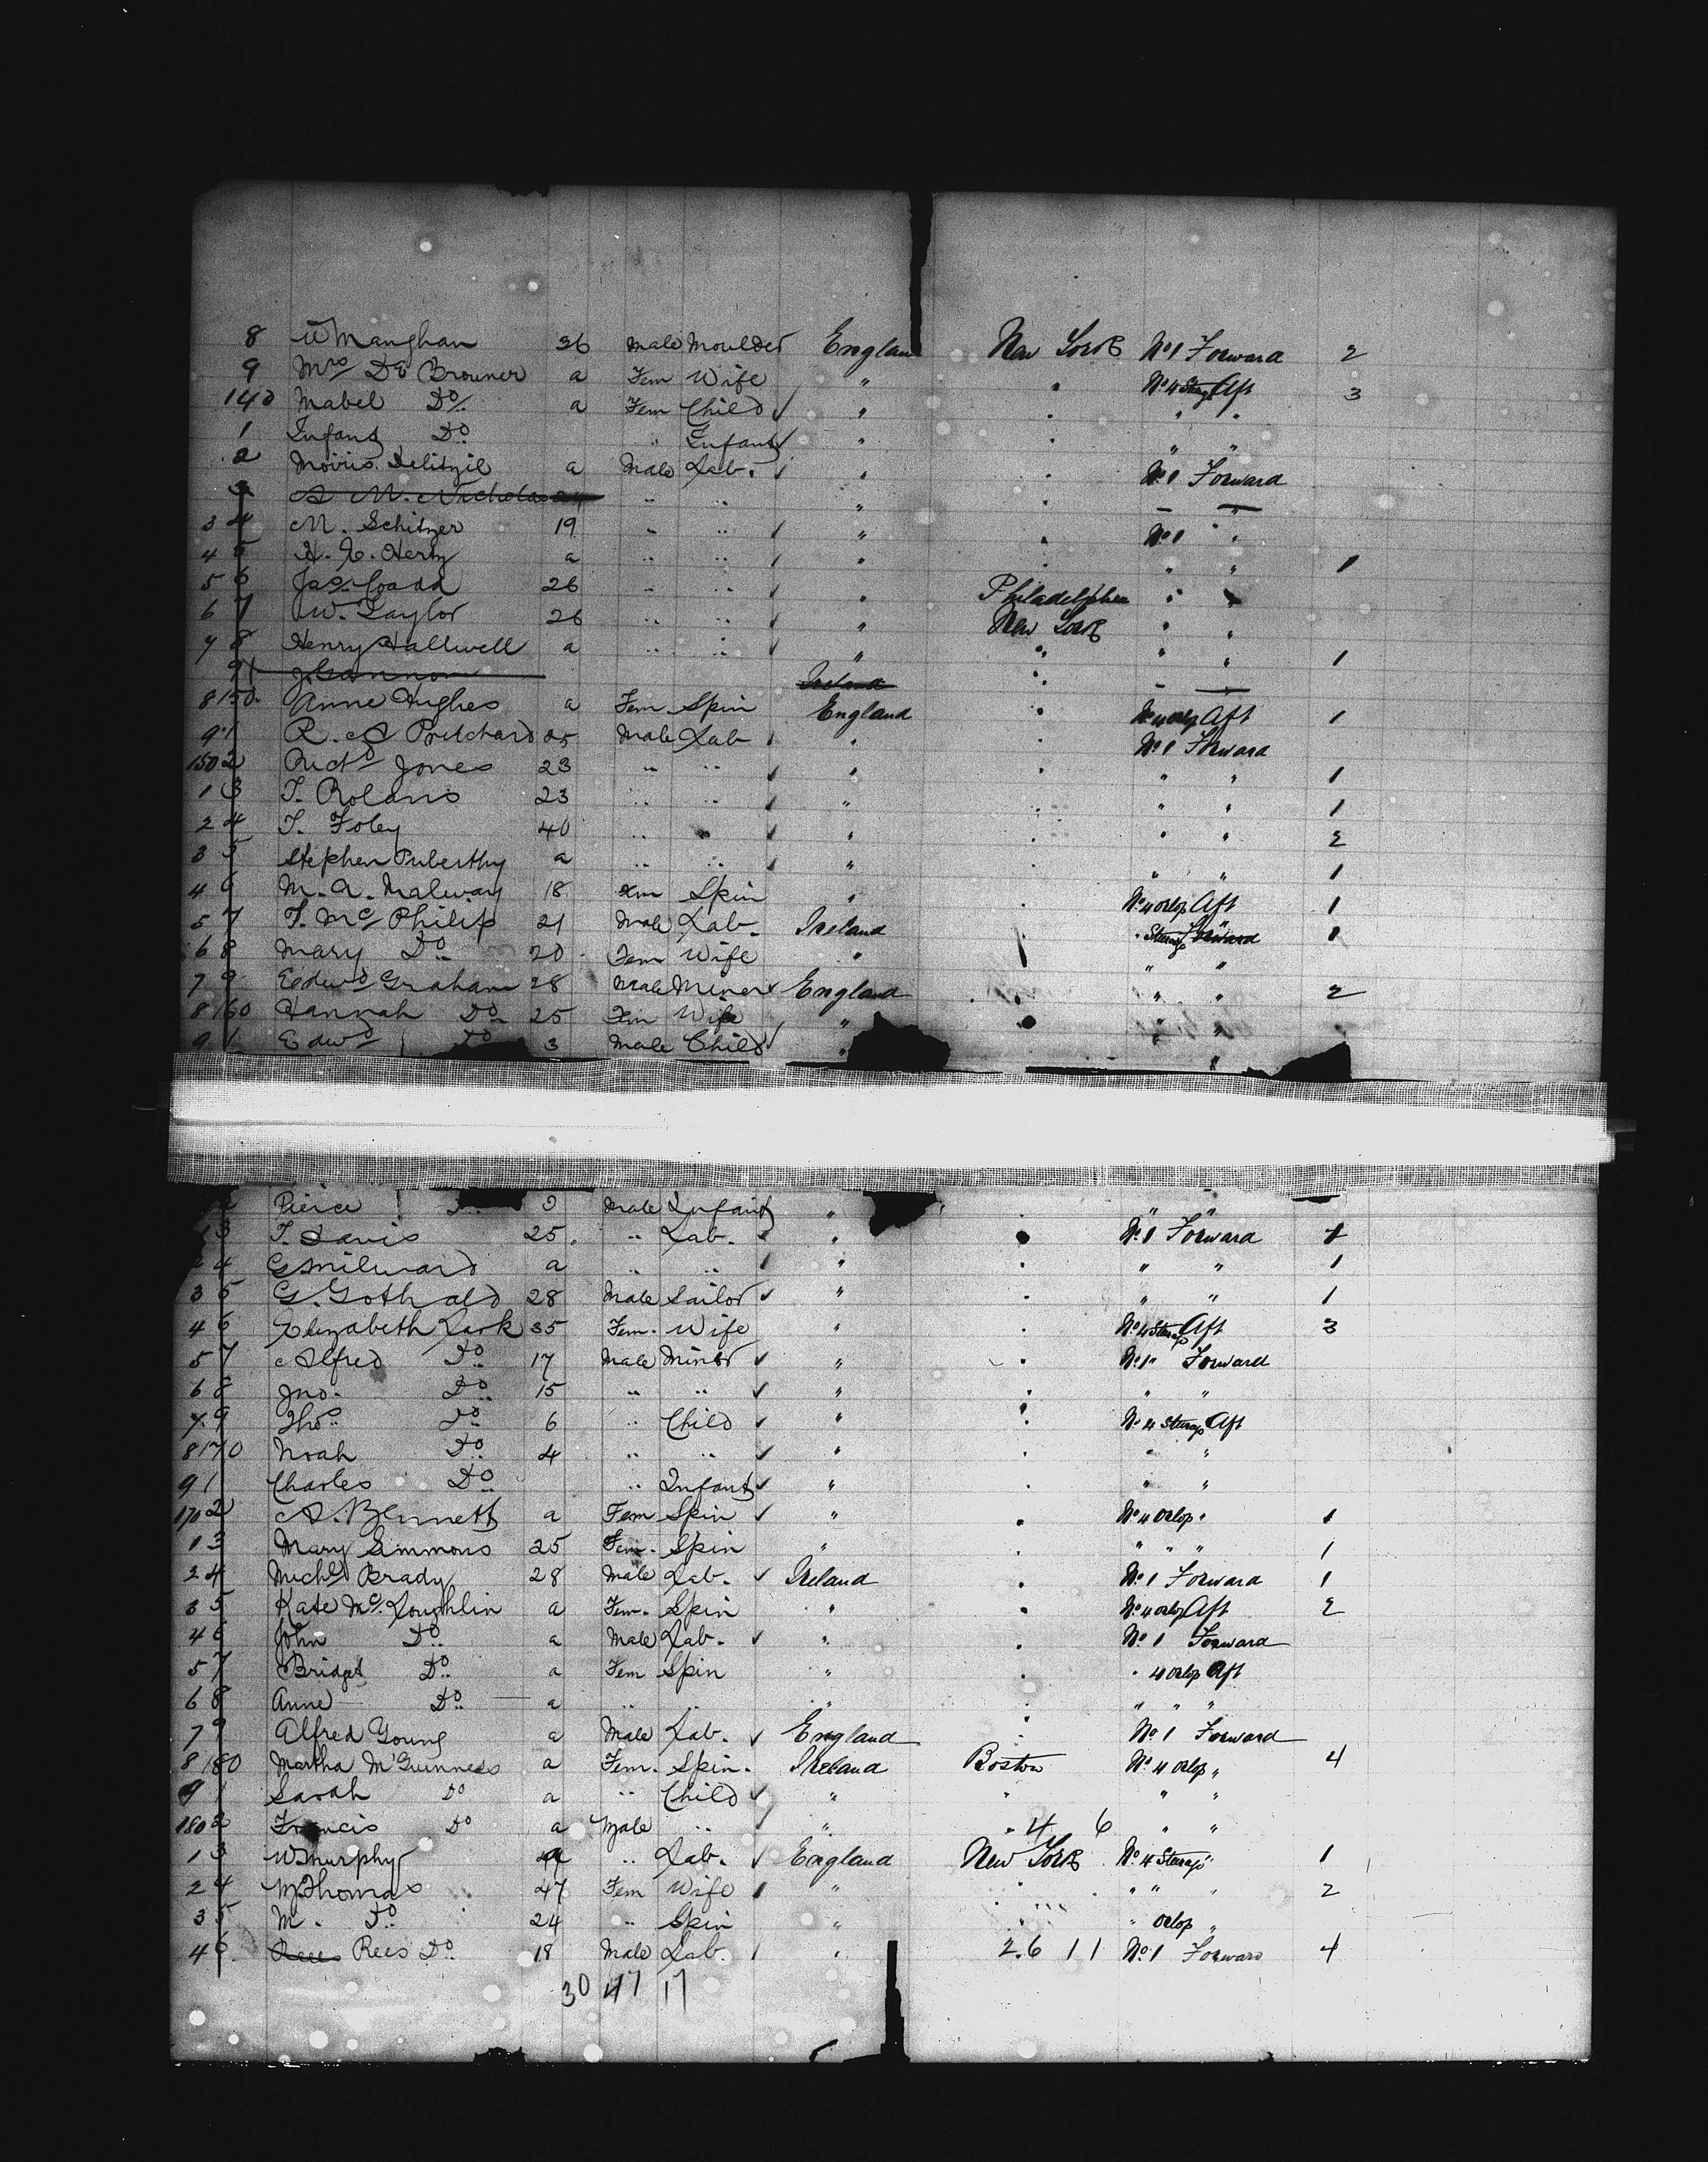 8 W Manghan 26 Male Moulder England New York No 1 Forward 2
9 Mrs De Brouner a Fem Wife " " No 4 Sterge Aft 3
140 Mabel Do a Fem Child ✓ " " " "
1 Infant Do " Infant ✓ " " " "
2 Morris a Male Lab. ✓ " " No 1 Forward
3 A M. Nicholas 24 " " " " — "
3 4 M. Schitzer 19 " " ✓ " " No 1 "
4 5 H. L. Hertz a " " ✓ " " " " 1
5 6 Jas. Coada 26 " " ✓ " Philadelphia " "
6 7 W. Taylor 26 " " ✓ " New York " "
7 8 Henry Halliwell a " " ✓ " " " " 1
9 J. Gannon Ireland " — —
8 150 Anne Hughes a Fem Spin England " No 4 Orlop Aft 1
9 1 R. A Pritchard 25 Male Lab ✓ " " No 1 Forward
150 2 Richd Jones 23 " " ✓ " " " " 1
1 3 T. Rolans 23 " " ✓ " " " " 1
2 4 T. Foley 40 " " ✓ " " " " 2
3 5 Stephen Puberthy a " " ✓ " " " " 1
4 6 M. A. Malway 18 Fem Spin " " No 4 Orlop Aft 1
5 7 T. Mc Philip 21 Male Lab. Ireland " " Sterage Forward 1
6 8 Mary Do 20 Fem Wife " " " "
7 9 Edwd Graham 28 Male Miner ✓ England " " " 2
8 160 Hannah Do 25 Fem Wife " " " "
9 1 Edwd Do 3 Male Child ✓ " "
2 Pierce Male Infant " " "
1 3 T. Davis 25 " Lab. ✓ " " No 1 Forward 1
2 4 G Milward a " " ✓ " " " " 1
3 5 G. Gothald 28 Male Sailor ✓ " " " " 1
4 6 Elizabeth Lark 35 Fem. Wife " " No 4 Sterage Aft 3
5 7 Alfred Do 17 Male Minor ✓ " " No 1 " Forward
6 8 Jno. Do 15 " " ✓ " " " "
7 9 Thos Do 6 " Child ✓ " " No 4 Sterage Aft
8 170 Noah Do 4 " " ✓ " " " "
9 1 Charles Do " Infant ✓ " " " "
170 2 A. Bennett a Fem Spin ✓ " " No 4 Orlop " 1
1 3 Mary Simmons 25 Fem. Spin " " " " " 1
2 4 Michl Brady 28 Male Lab. ✓ Ireland " No 1 Forward 1
3 5 Kate Mc. Loughlin a Fem. Spin " " No 4 Orlop Aft 2
4 6 John Do a Male Lab. ✓ " " No 1 Forward
5 7 Bridget Do a Fem Spin " " " 4 Orlop Aft
6 8 Anne Do a " " " " " " "
7 9 Alfred Young a Male Lab. ✓ England " No 1 Forward
8 180 Martha McGuinness a Fem. Spin. Ireland Boston No 4 Orlop " 4
9 1 Sarah Do a " Child ✓ " " " "
180 2 Francis Do a Male " ✓ " " 4 6 " "
1 3 W Murphy a " Lab. ✓ England New York No 4 Sterage " 1
2 4 M Thomas 47 Fem Wife " " " " " 2
3 5 M. Do 24 " Spin " " " Orlop "
4 6 Rees Rees Do 18 Male Lab. ✓ " 2.6 11 No 1 Forward 4
30 47 17